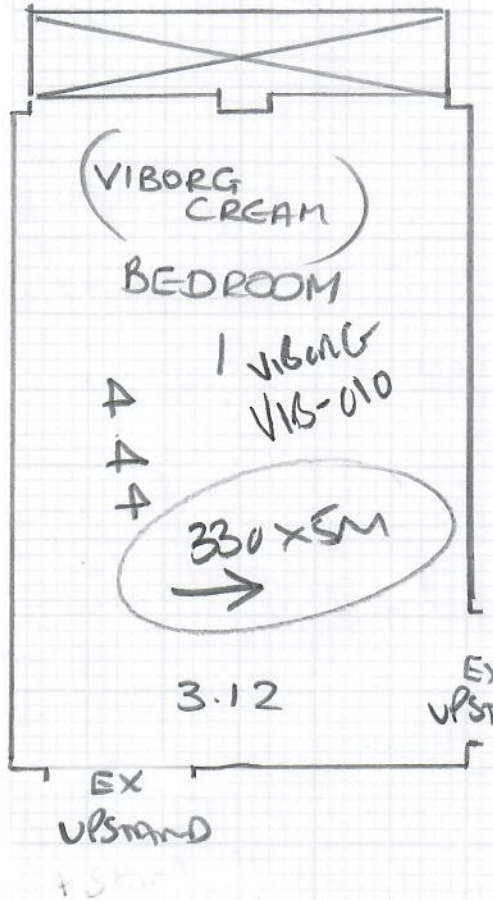 (VIBORG
CREAM)
BEDROOM
1 VIBORG
VIB-010
4.44
330 x 5M
3.12
EX
UPST
EX
UPSTAND